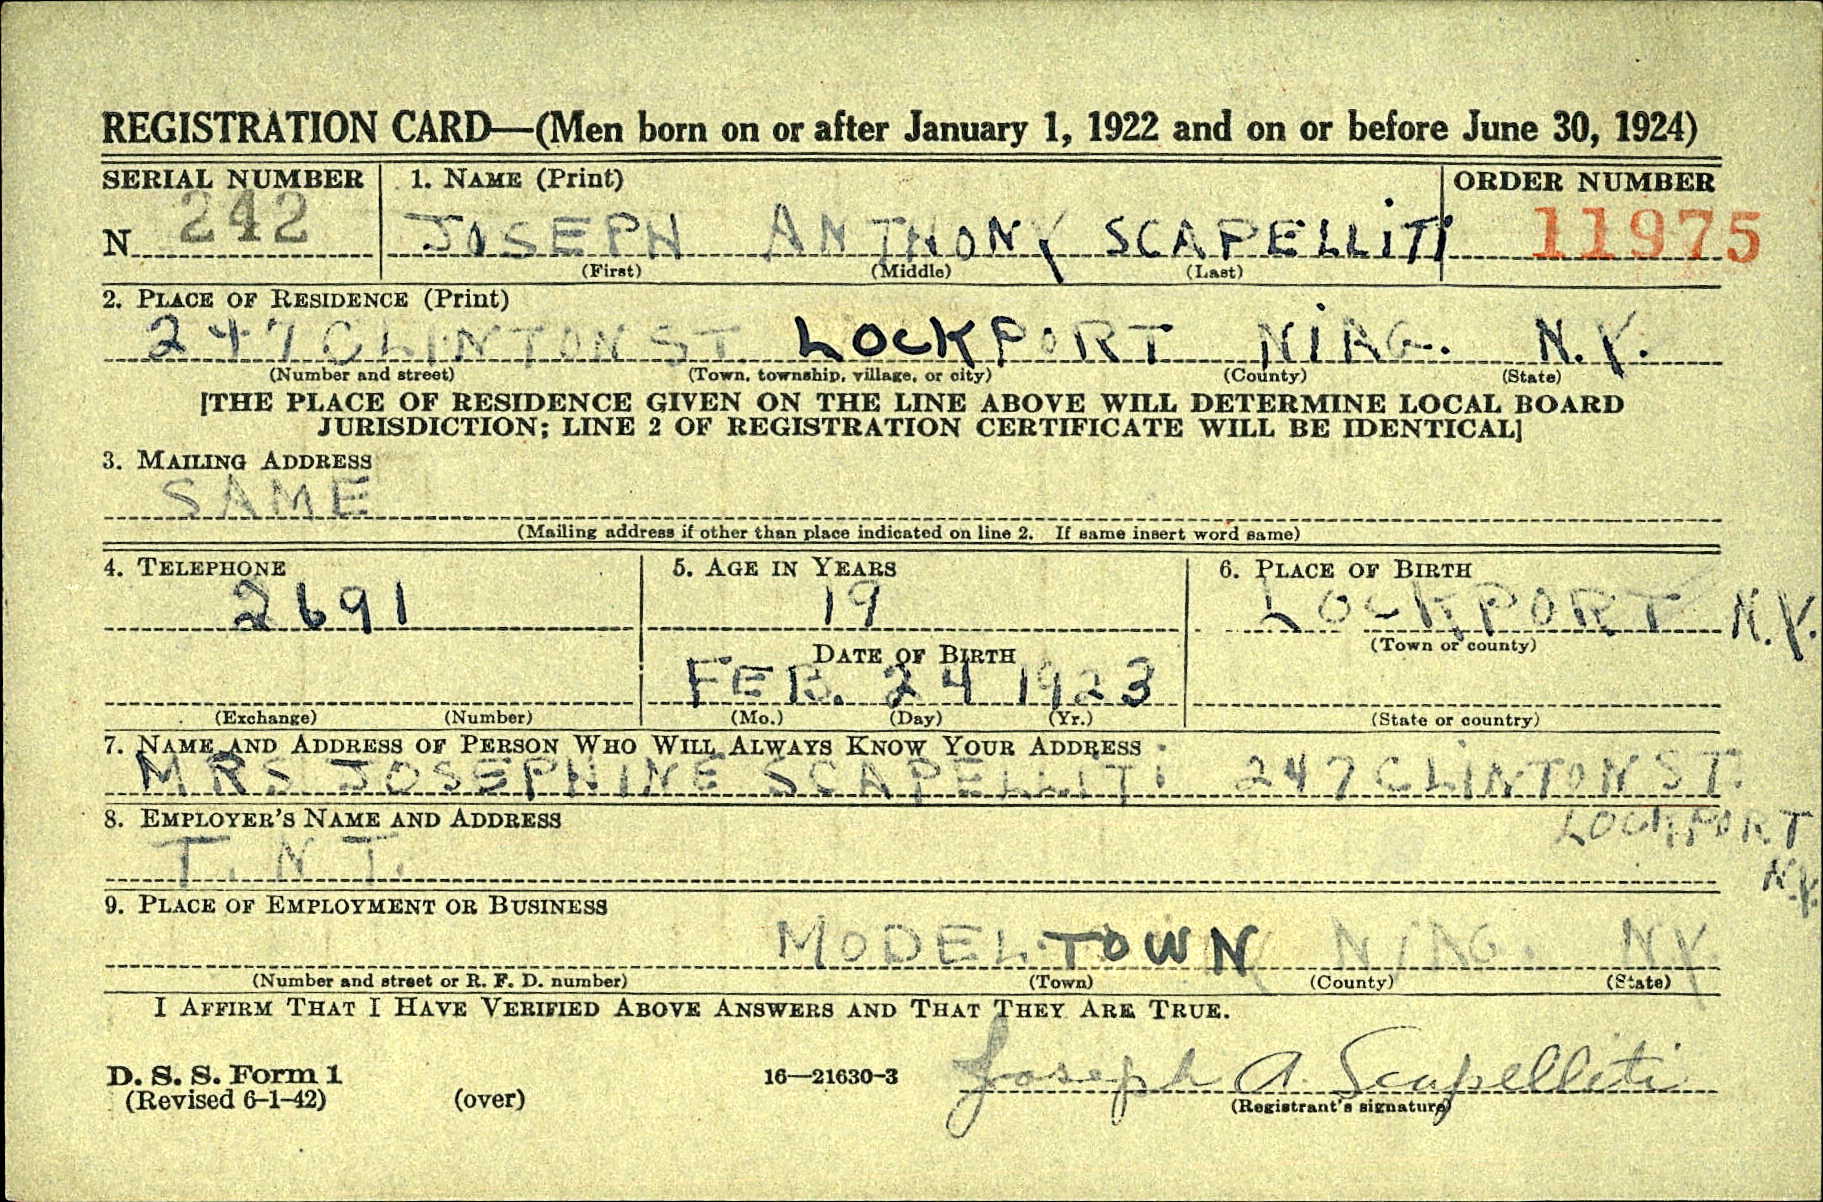 REGISTRATION CARD—(Men born on or after January 1, 1922 and on or before June 30, 1924)
SERIAL NUMBER 1. NAME (Print) ORDER NUMBER
N 242 JOSEPH ANTHONY SCAPELLITI 11975
(First) (Middle) (Last)
2. PLACE OF RESIDENCE (Print)
247 CLINTON ST. LOCKPORT NIAG. N.Y.
(Number and street) (Town, township, village, or city) (County) (State)
[THE PLACE OF RESIDENCE GIVEN ON THE LINE ABOVE WILL DETERMINE LOCAL BOARD
JURISDICTION; LINE 2 OF REGISTRATION CERTIFICATE WILL BE IDENTICAL]
3. MAILING ADDRESS
SAME
(Mailing address if other than place indicated on line 2. If same insert word same)
4. TELEPHONE 5. AGE IN YEARS 6. PLACE OF BIRTH
2691 19 LOCKPORT N.Y.
(Town or county)
DATE OF BIRTH
FEB. 24 1923
(Exchange) (Number) (Mo.) (Day) (Yr.) (State or country)
7. NAME AND ADDRESS OF PERSON WHO WILL ALWAYS KNOW YOUR ADDRESS
MRS JOSEPHINE SCAPELLITI 247 CLINTON ST.
LOCKPORT
N.Y.
8. EMPLOYER'S NAME AND ADDRESS
T. N. T.
9. PLACE OF EMPLOYMENT OR BUSINESS
MODEL TOWN NIAG. N.Y.
(Number and street or R. F. D. number) (Town) (County) (State)
I AFFIRM THAT I HAVE VERIFIED ABOVE ANSWERS AND THAT THEY ARE TRUE.
D. S. S. Form 1
(Revised 6-1-42) (over) 16—21630-3 Joseph A. Scapelliti
(Registrant's signature)